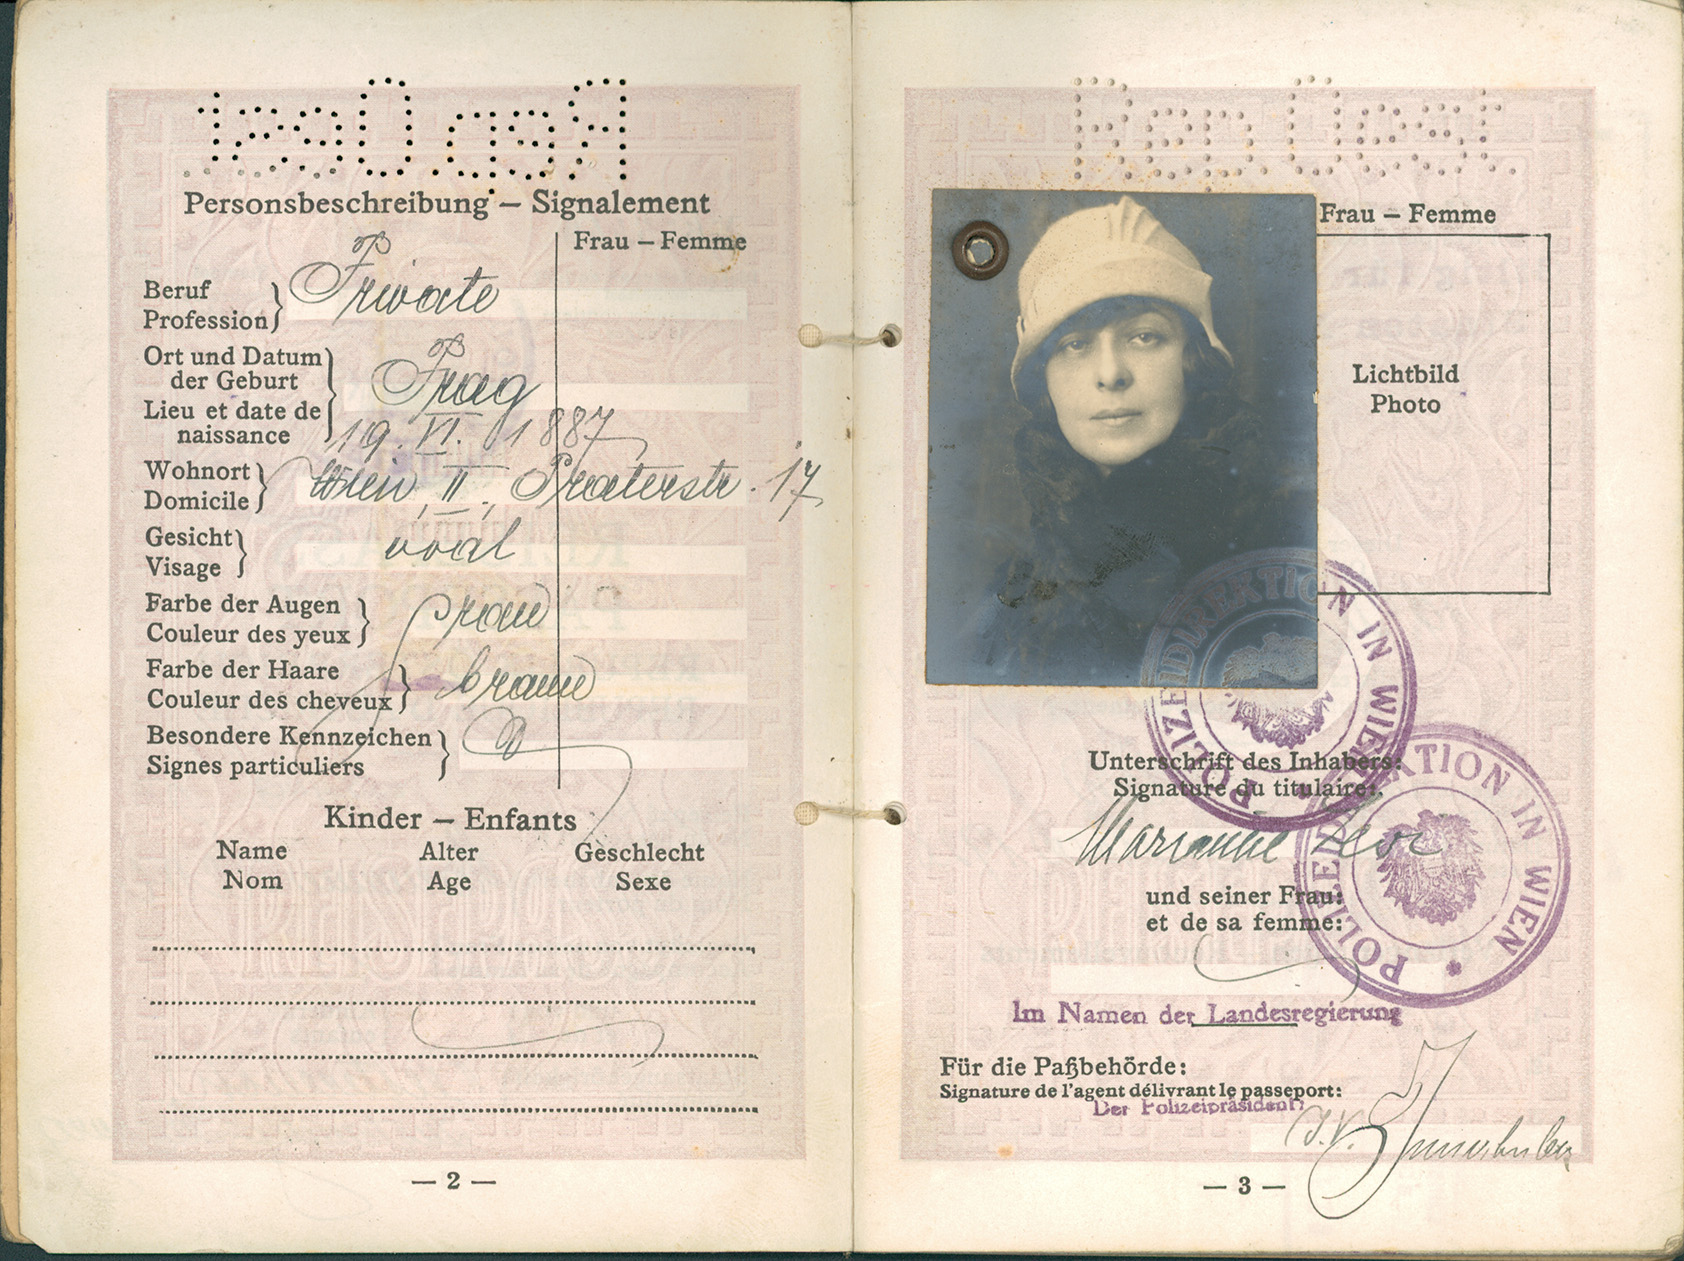 Rep. Oest.
Personsbeschreibung – Signalement
Frau – Femme
Beruf
Profession
Private
Ort und Datum
der Geburt
Lieu et date de
naissance
Prag
19. VI. 1887
Wohnort
Domicile
Wien, II., Praterstr. 17
Gesicht
Visage
oval
Farbe der Augen
Couleur des yeux
grau
Farbe der Haare
Couleur des cheveux
braun
Besondere Kennzeichen
Signes particuliers
Kinder – Enfants
Name Alter Geschlecht
Nom Age Sexe
— 2 —
Rep. Oest.
Frau – Femme
Lichtbild
Photo
POLIZEIDIREKTION IN WIEN
Unterschrift des Inhabers:
Signature du titulaire:
Marianne
POLIZEIDIREKTION IN WIEN
und seiner Frau:
et de sa femme:
Im Namen der Landesregierung
Für die Paßbehörde:
Signature de l'agent délivrant le passeport:
Der Polizeipräsident:
I. V.
— 3 —